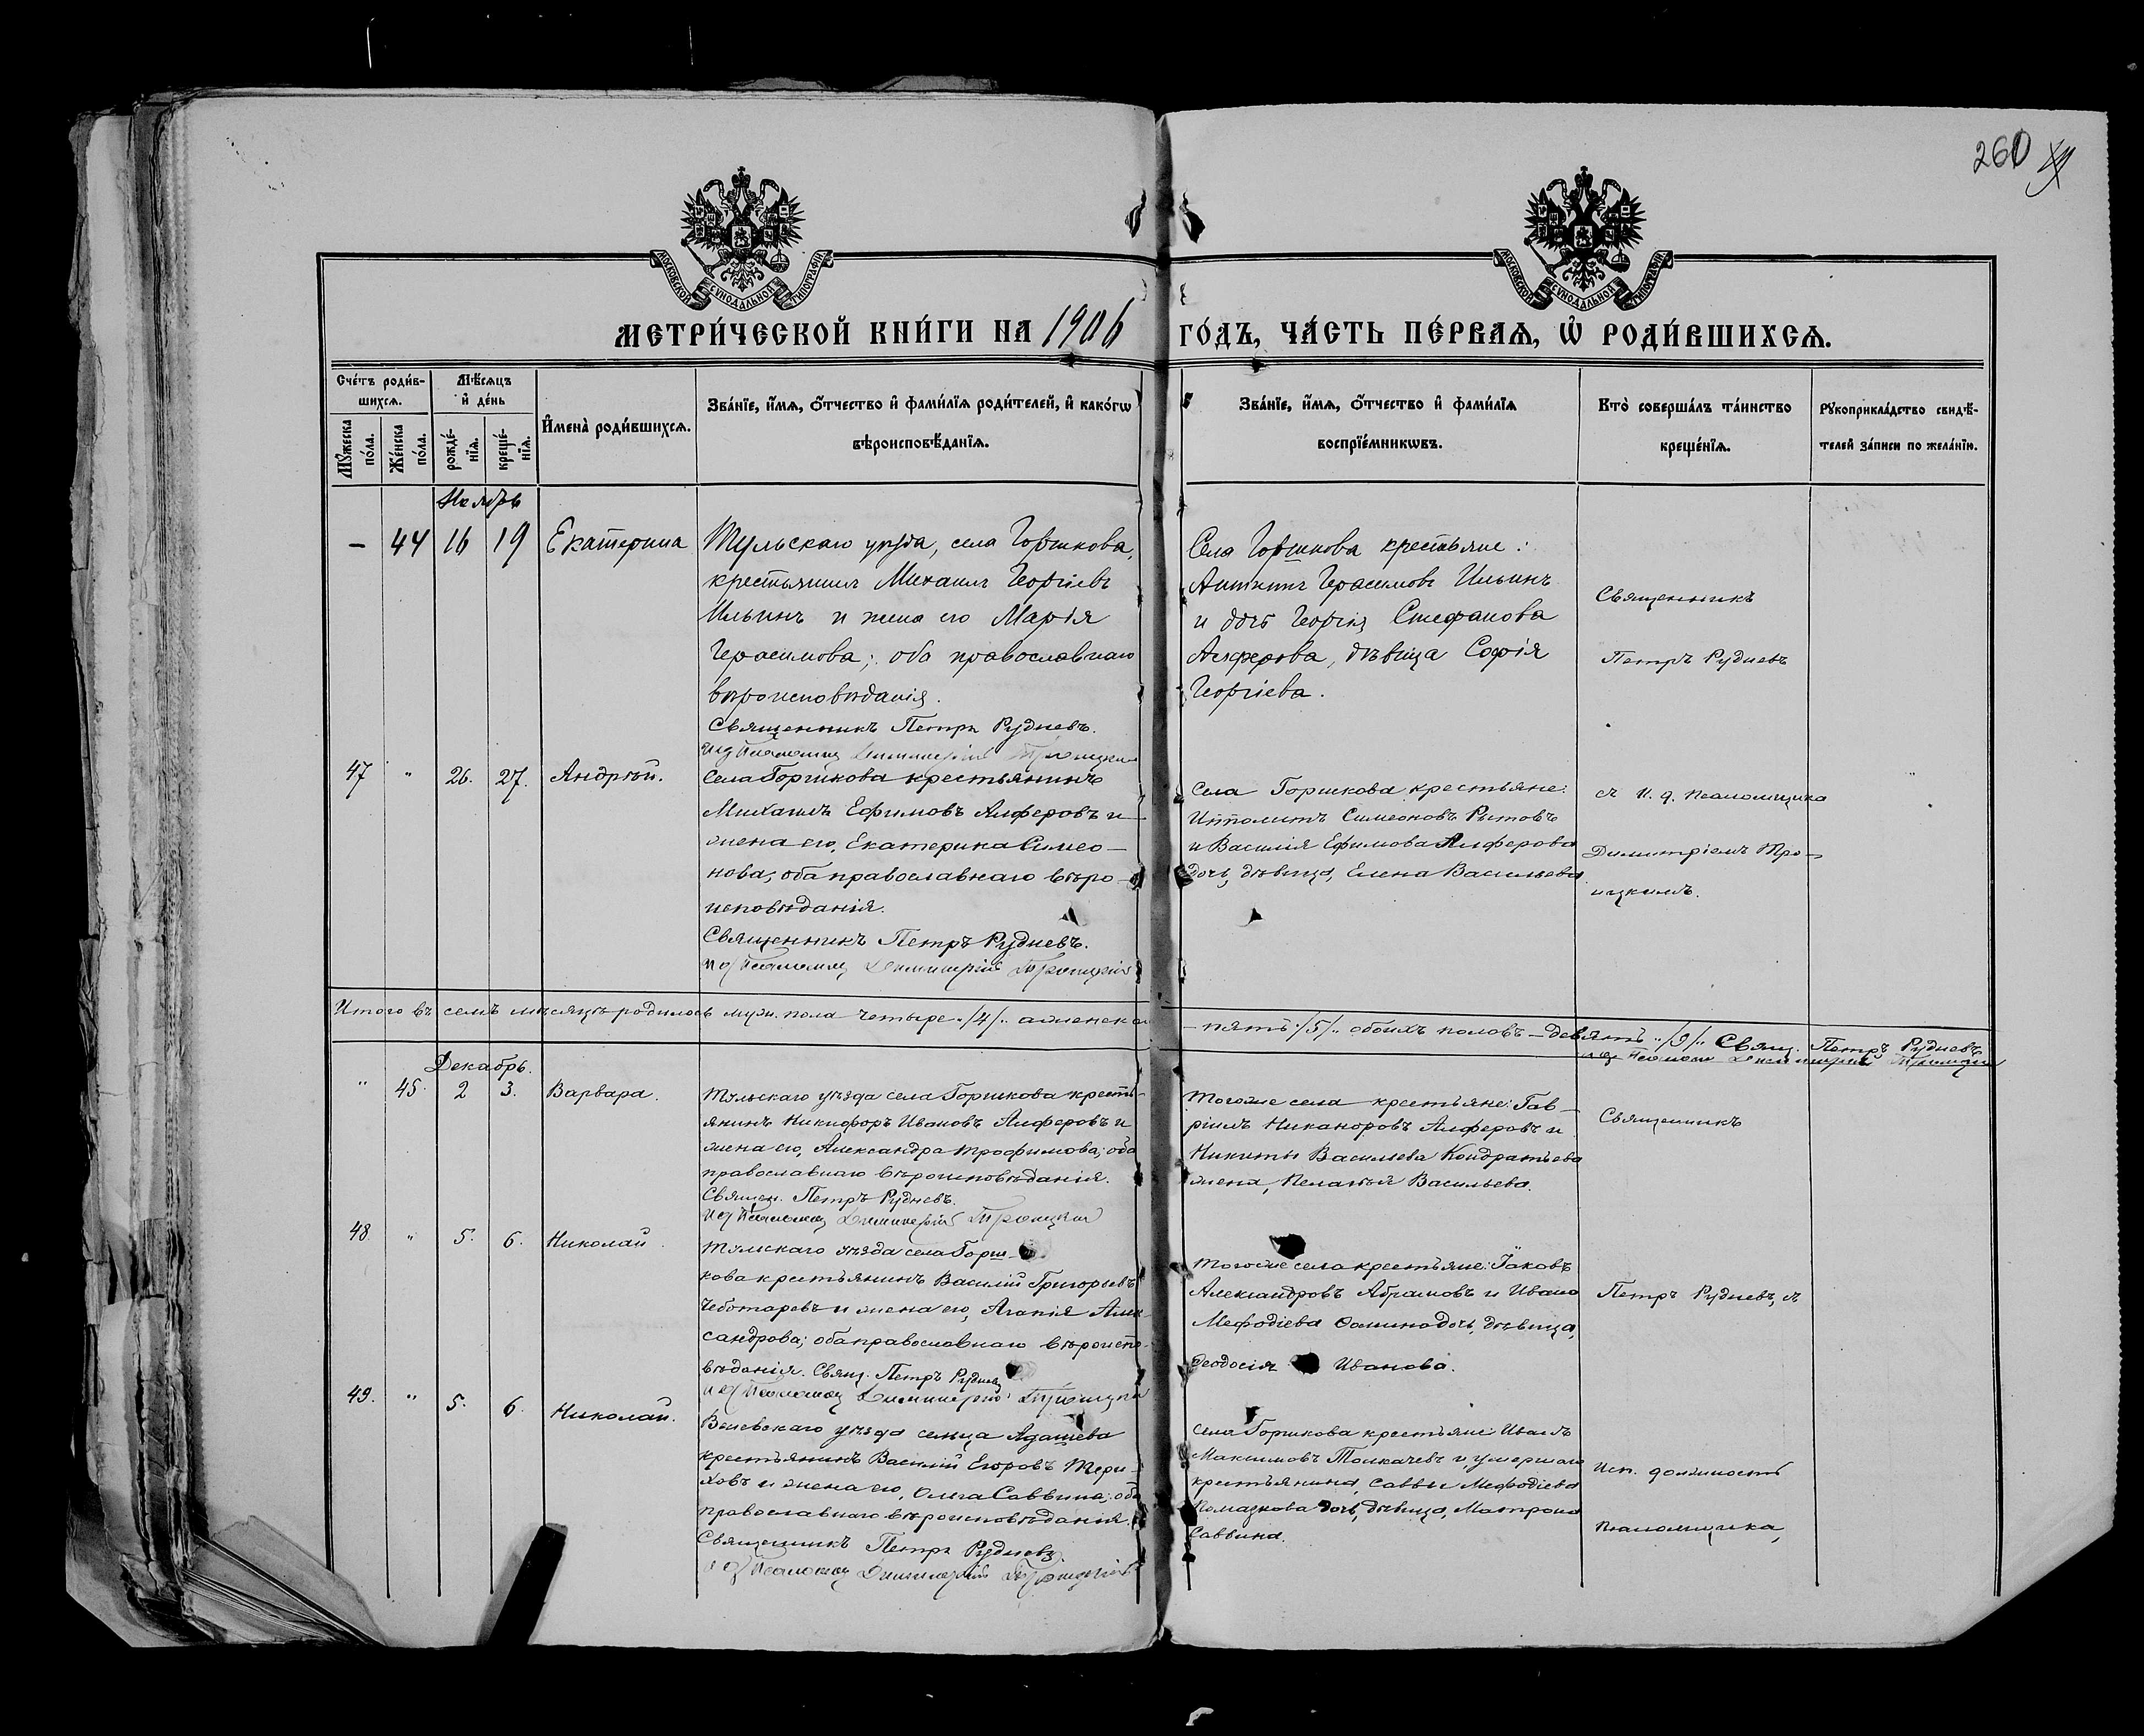 260
МОСКОВСКОЙ СѴНОДАЛЬНОЙ ТИПОГРАФІИ
МОСКОВСКОЙ СѴНОДАЛЬНОЙ ТИПОГРАФІИ
МЕТРИ́ЧЕСКОЙ КНИ́ГИ НА 1906 ГО́ДЪ, ЧА́СТЬ ПЕ́РВАѦ, Ѡ҆ РОДИ́ВШИХСѦ.
Сче́тъ роди́в-
шихсѧ.
Мꙋ́жеска по́ла.
Же́нска по́ла.
Мѣ́сѧцъ
и҆ де́нь
рожде́-
нїѧ.
креще́-
нїѧ.
И҆мена̀ роди́вшихсѧ.
Зва́нїе, и҆́мѧ, ѻ҆́тчество и҆ фами́лїѧ роди́телей, и҆ како́гѡ
вѣроисповѣ́данїѧ.
Зва́нїе, и҆́мѧ, ѻ҆́тчество и҆ фами́лїѧ
воспрїе́мникѡвъ.
Кто̀ соверша́лъ та́инство
креще́нїѧ.
Рꙋкоприкла́дство свидѣ́-
телей за́писи по жела́нїю.
Ноябрь
– 44 16 19 Екатерина
Тульскаго уѣзда, села Горшкова,
крестьянинъ Михаилъ Георгіевъ
Ильинъ и жена его Марія
Герасимова; оба православнаго
вѣроисповѣданія.
Священникъ Петръ Рудневъ.
ид Псаломщ Димитрій Троицкій
Села Горшкова крестьяне:
Герасимовъ Ильинъ
и дочь Георгія Стефанова
Алферова, дѣвица Софія
Георгіева.
Священникъ
Петръ Рудневъ
47 " 26. 27. Андрей.
Села Горшкова крестьянинъ
Михаилъ Ефимовъ Алферовъ и
жена его, Екатерина Симео-
нова; оба православнаго вѣро-
исповѣданія.
Священникъ Петръ Рудневъ.
ид Псаломщ Димитрій Троицкій
Села Горшкова крестьяне:
Ипполитъ Симеоновъ Рытовъ
и Василія Ефимова Алферова
дочь, дѣвица, Елена Васильева
съ И. д. псаломщика
Димитріемъ Тро-
ицкимъ.
Итого въ семъ мѣсяцѣ родилось муж. пола четыре ./4/. а женска – пять ./5/. обоихъ половъ – девять ./9/. Свящ. Петръ Рудневъ
ид Псаломщ Димитрій Троицкій
Декабрь.
" 45. 2 3. Варвара.
Тульскаго уѣзда села Горшкова кресть-
янинъ Никифоръ Ивановъ Алферовъ и
жена его, Александра Трофимова; оба
православнаго вѣроисповѣданія.
Священ. Петръ Рудневъ.
ид Псаломщ Димитрій Троицкій
Тогоже села крестьяне: Гав-
ріилъ Никаноровъ Алферовъ и
Никиты Васильева Кондратьева
жена, Пелагія Васильева.
Священникъ
48 " 5. 6. Николай.
Тульскаго уѣзда села Горш-
кова крестьянинъ Василій Григорьевъ
Чеботаревъ и жена его, Агапія Алек-
сандрова; оба православнаго вѣроиспо-
вѣданія. Свящ. Петръ Рудневъ
ид Псаломщ Димитрій Троицкій
Тогоже села крестьяне: Іаковъ
Александровъ Абрамовъ и Ивана
Меѳодіева Ѳомина дочь, дѣвица,
Ѳеодосія Иванова.
Петръ Рудневъ, съ
49. " 5. 6. Николай.
Веневскаго уѣзда сельца Адашева
крестьянинъ Василій Егоровъ Тери-
ховъ и жена его, Ольга Саввина; оба
православнаго вѣроисповѣданія.
Священникъ Петръ Рудневъ.
ид Псаломщ Димитрій Троицкій
Села Горшкова крестьяне: Иванъ
Максимовъ Толкачевъ и умершаго
крестьянина, Саввы Меѳодіева
Помазкова дочь, дѣвица, Матрона
Саввина.
Исп. должность
псаломщика,